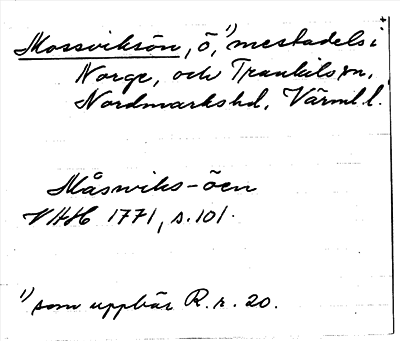 Mossviksön, ö,¹) mestadels i
Norge, och Trankils sn,
Nordmarks hd, Värml. l.
Måswiks-öen
VHH 1771, s. 101.
¹) som uppbär R. r. 20.